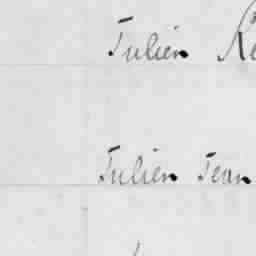 Julien
Julien Jean